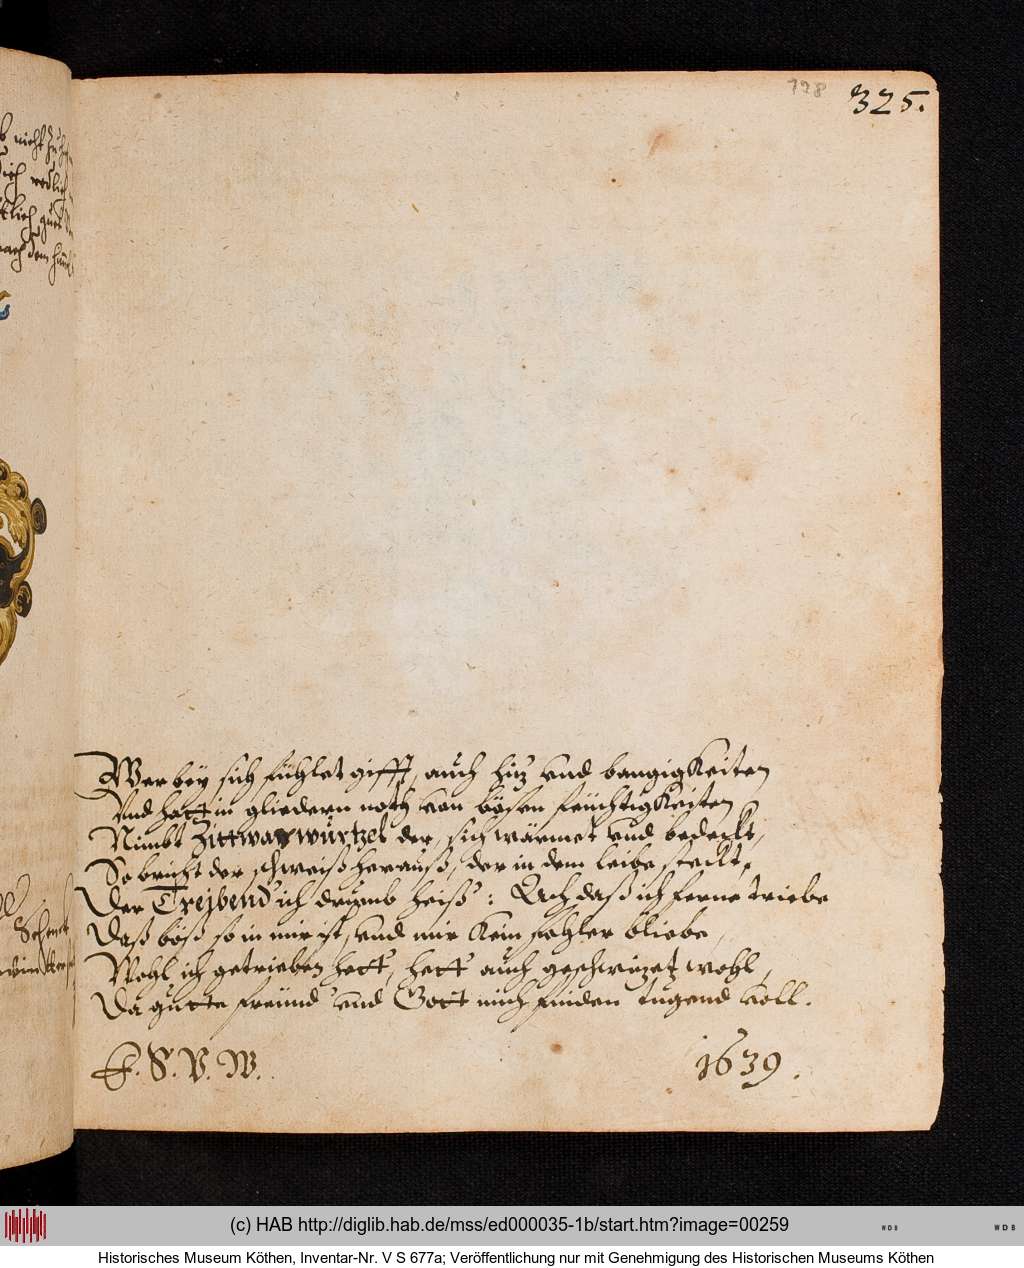 198
325.
Wer bey sich fühlet gifft, auch hitz vnd bangigKeiten
Vnd hatt in gliedern noth von bösen feüchtigKeiten
Nimbt Zittwarwürtzel der, sich wärmet vnd bedeckt,
So bricht der schweiß herauß, der in dem leibe steckt,
Der Trejbend ich drumb heiß: Ach daß ich ferne triebe
Daß böß so in mir ist, vnd mir Kein fehler bliebe,
Wohl ich getrieben hett, hett auch geschwizet wohl,
Da gutte freünd vnd Gott mich finden tugend voll.
E. S. V. W.
1639.
nicht
dem
(c) HAB http://diglib.hab.de/mss/ed000035-1b/start.htm?image=00259
WDB
WDB
Historisches Museum Köthen, Inventar-Nr. V S 677a; Veröffentlichung nur mit Genehmigung des Historischen Museums Köthen